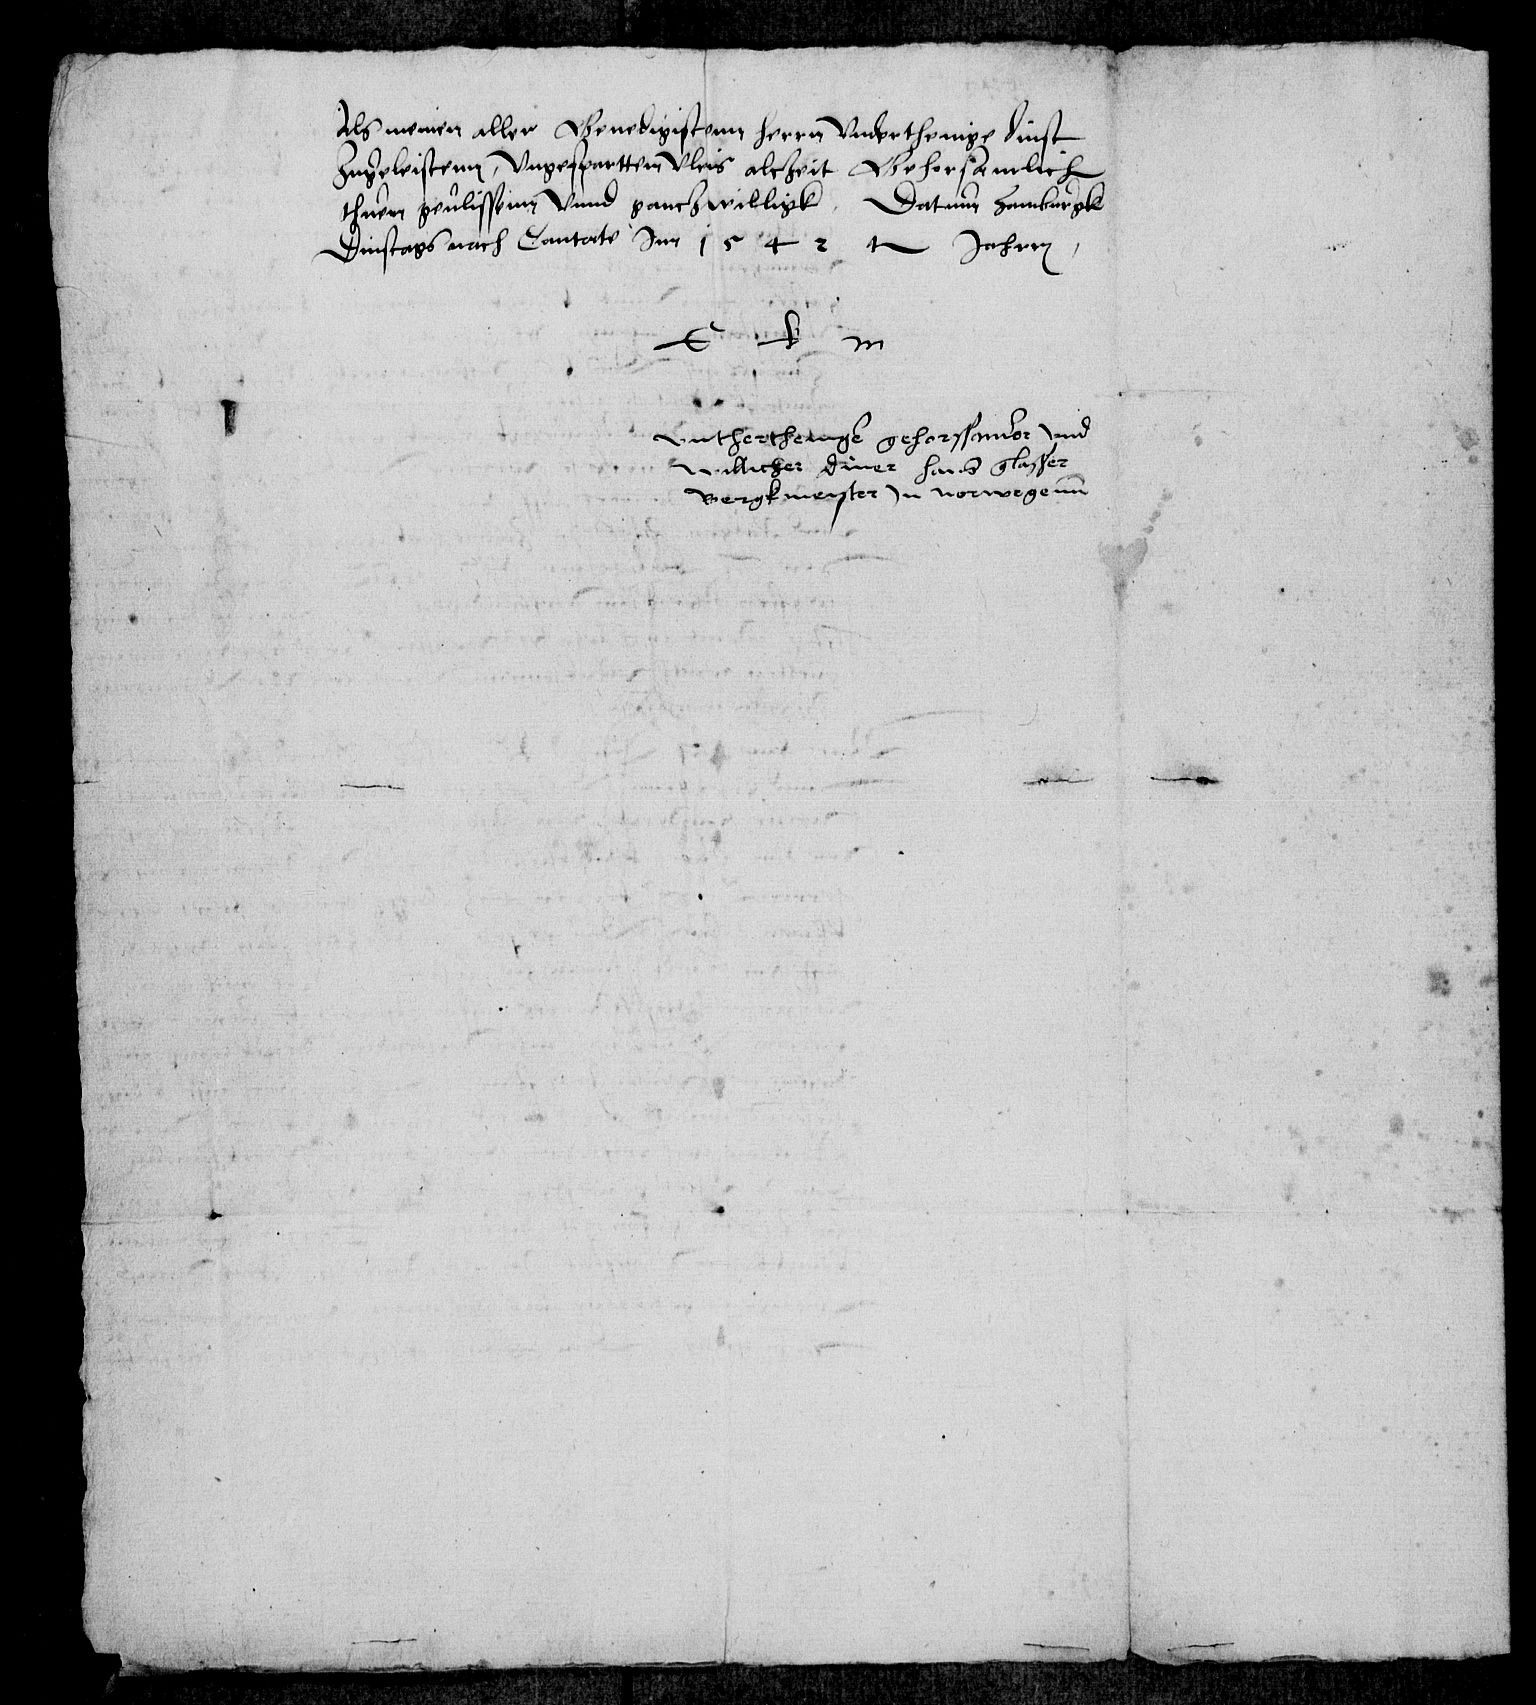 Als meinen aller Genedigistenn herrn Vnderthenige dinst
Zugeleistenn, Vngespartten Vleis alczeit Gehorsamlich
thuen geulissenn Vnnd gancz willigk. Datum Hamburgk
Dinstags nach Cantate Inn 1542 tn Jahrn,
E k m
vnthertheniger gehorssamer vnd
willicher diner hans glasser
Bergkmeister yn norwegenn